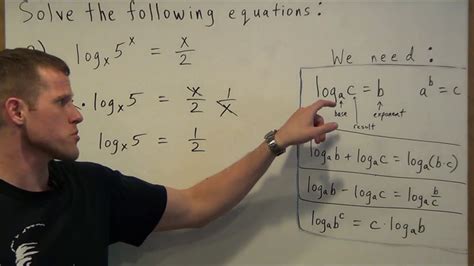 Solve the following equations:
logₓ5ˣ = x/2
· logₓ5 = x/2 1/x
logₓ5 = 1/2
We need:
logₐc = b aᵇ = c
base result exponent
logₐb + logₐc = logₐ(b·c)
logₐb - logₐc = logₐ b/c
logₐbᶜ = c·logₐb